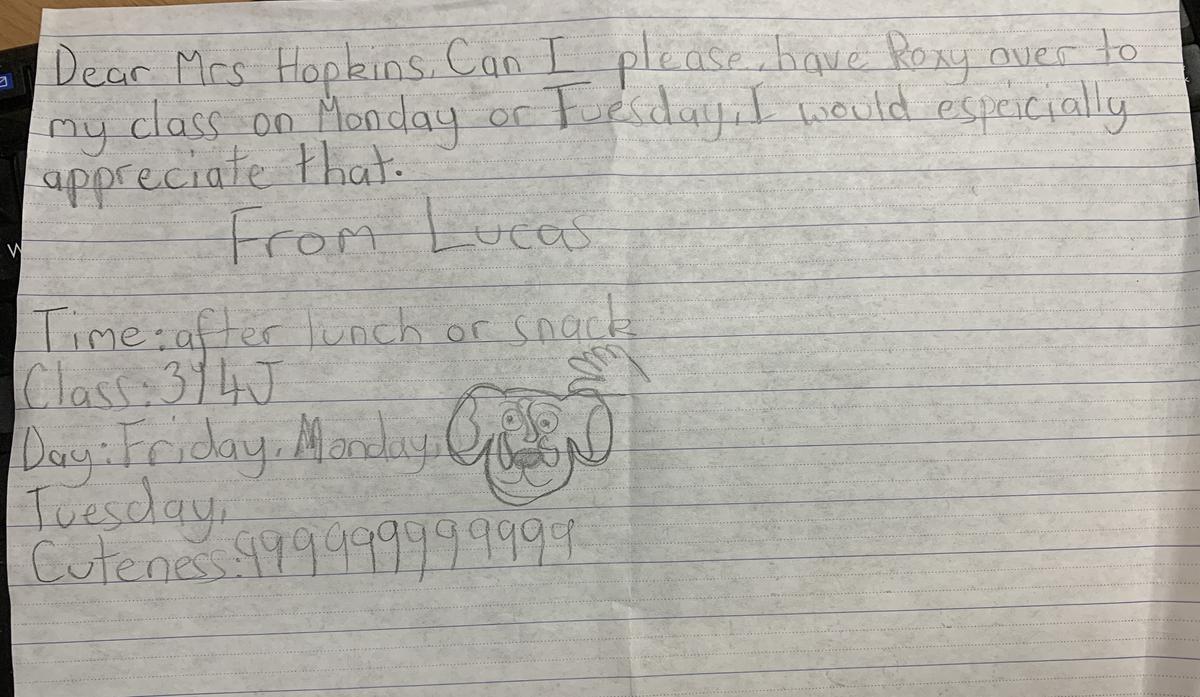 Dear Mrs Hopkins. Can I please, have Roxy over to
my class on Monday or Tuesday, I would espeicially
appreciate that.
From Lucas
Time: after lunch or snack
Class: 3/4J
Day: Friday, Monday,
Tuesday,
Cuteness: 9999999999999